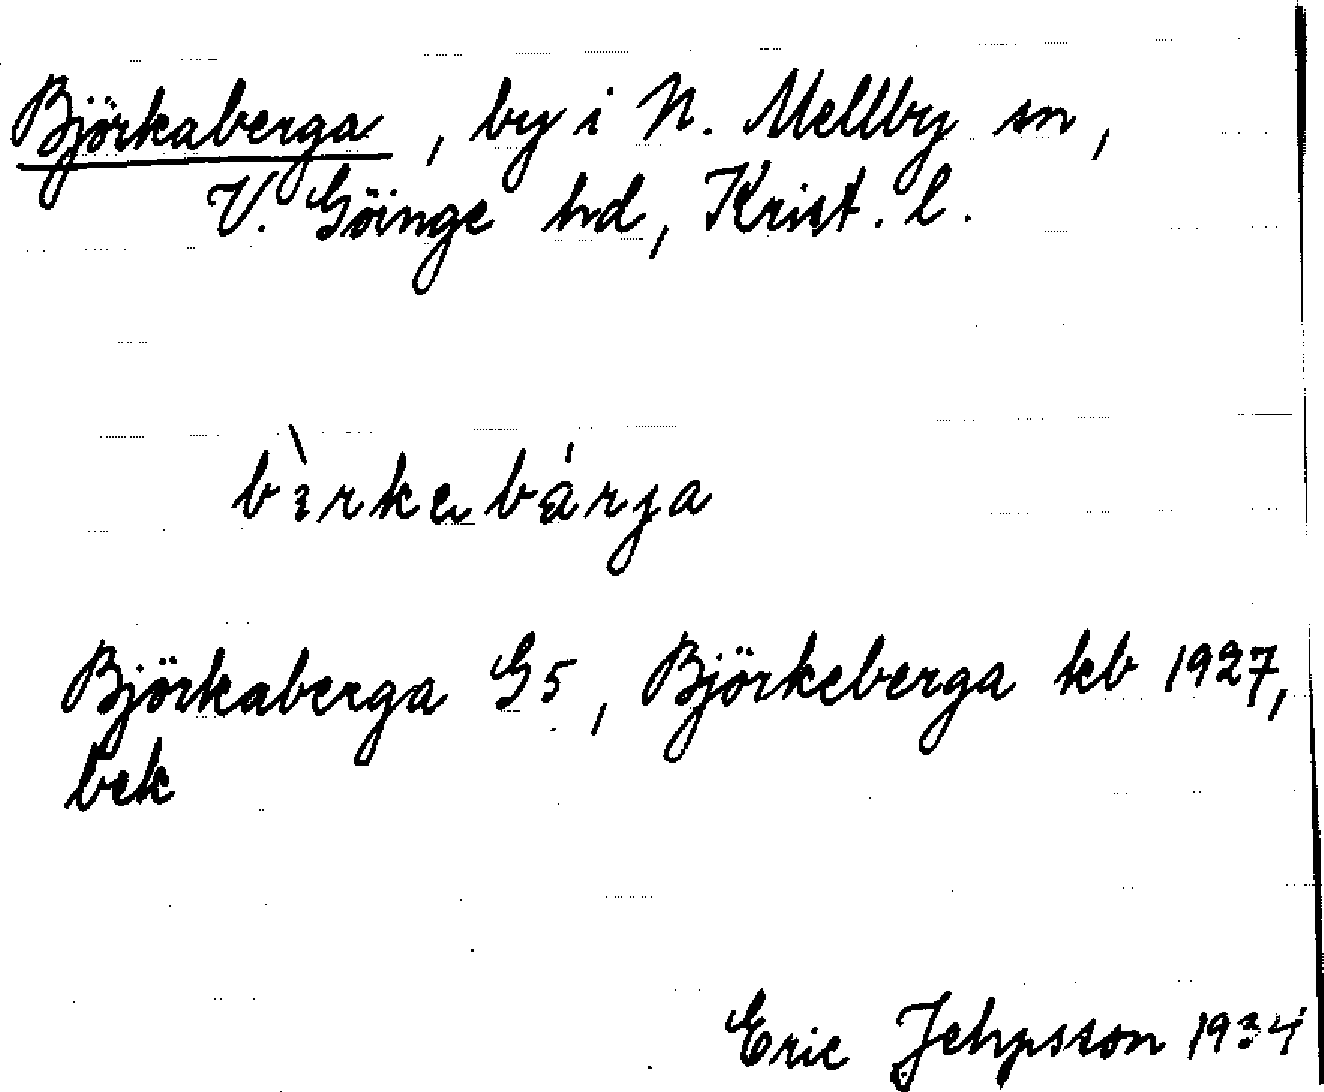 Björkaberga, by i N. Mellby sn,
V. Göinge hd, Krist. l.
Björkaberga G5, Björkeberga kb 1927,
bek
Eric Jehpsson 1934